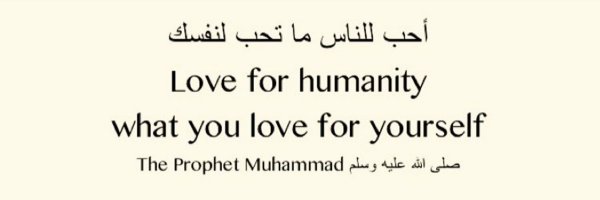 أحب للناس ما تحب لنفسك
Love for humanity
what you love for yourself
The Prophet Muhammad صلى الله عليه وسلم